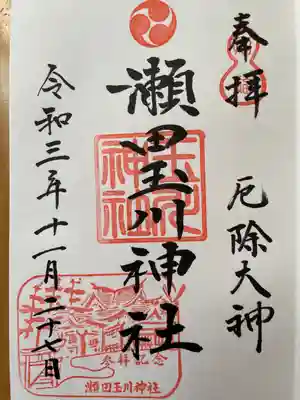 奉拝 厄除大神
瀬田玉川神社
令和三年十一月二十七日
玉川神社
参拝記念
瀬田玉川神社